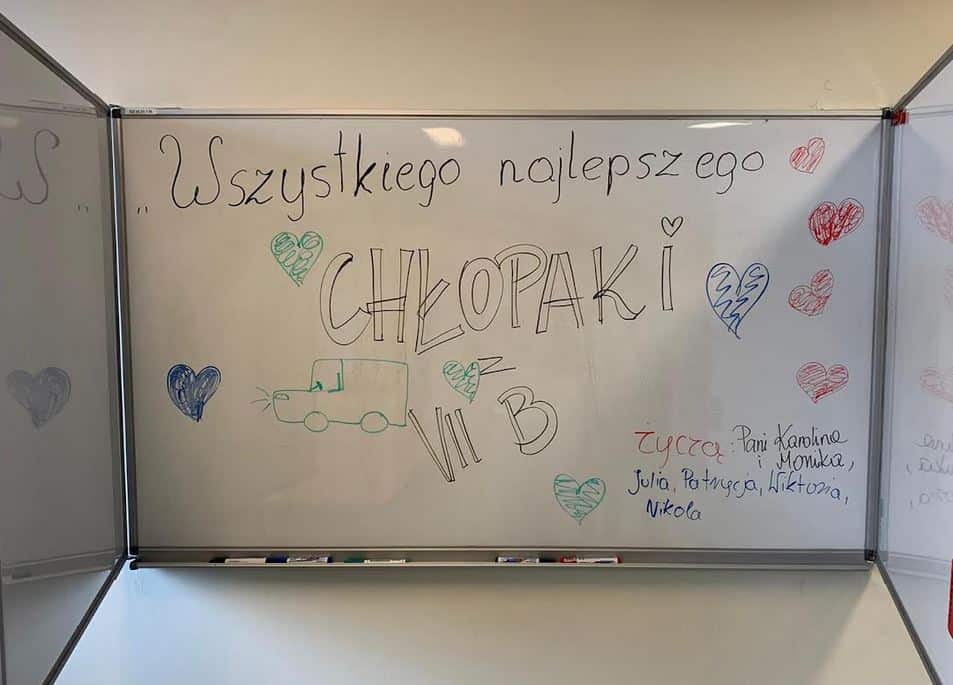 „Wszystkiego najlepszego
CHŁOPAKI
Z
VII B
życzą: Pani Karolina
i Monika,
Julia, Patrycja, Wiktoria,
Nikola